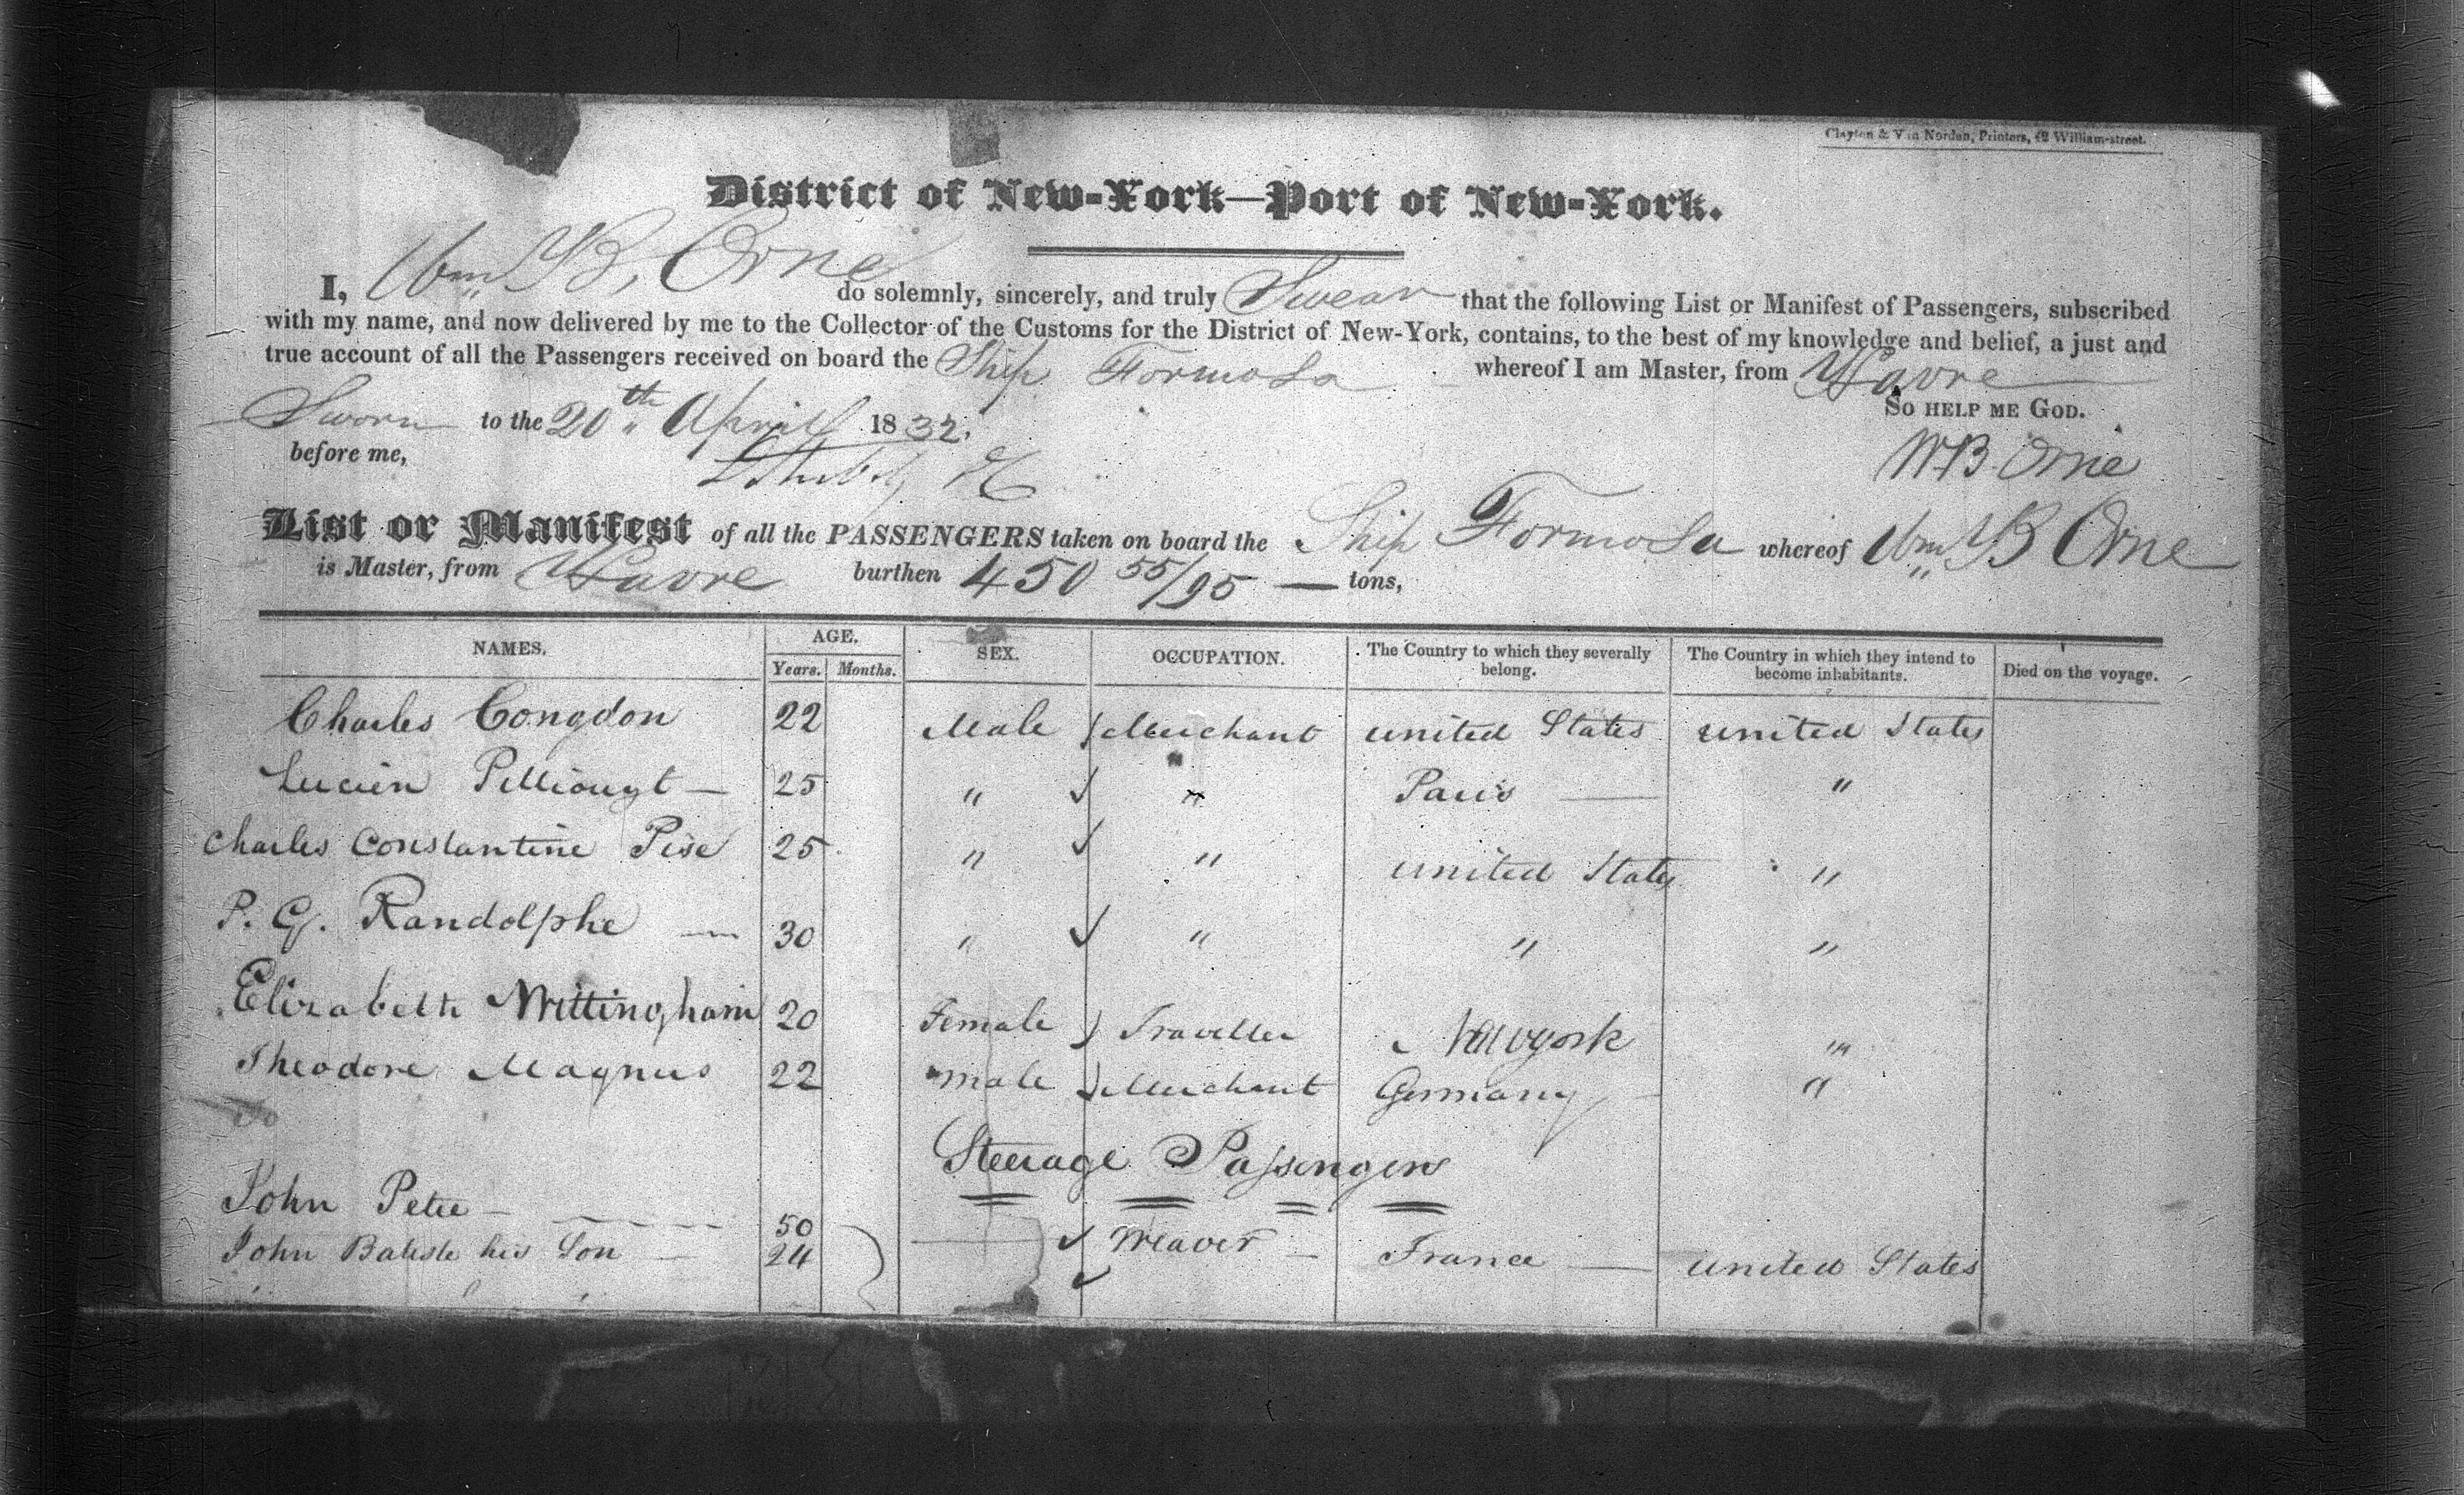 Clayton & Van Norden, Printers, 42 William-street.
District of New-York—Port of New-York.
I, Wm B, Orne do solemnly, sincerely, and truly Swear that the following List or Manifest of Passengers, subscribed
with my name, and now delivered by me to the Collector of the Customs for the District of New-York, contains, to the best of my knowledge and belief, a just and
true account of all the Passengers received on board the Ship Formosa whereof I am Master, from Havre
So help me God.
Sworn to the 20th April 1832.
before me,
W.B. Orne
List or Manifest of all the PASSENGERS taken on board the Ship Formosa whereof Wm B Orne
is Master, from Havre burthen 450 55/95 — tons,
NAMES. AGE. Years. Months. SEX. OCCUPATION. The Country to which they severally belong. The Country in which they intend to become inhabitants. Died on the voyage.
Charles Congdon 22 Male Merchant united States united States
Lucien 25 " " Paris — "
Charles Constantine Pise 25 " " united States "
P. G. Randolphe — 30 " " " "
Elizabeth Wittingham 20 Female Traveller Newyork "
Theodore Magnus 22 male Merchant Germany "
Do
Steerage Passengers
John Peter — 50
John Batiste his Son — 24 Weaver — France — united States